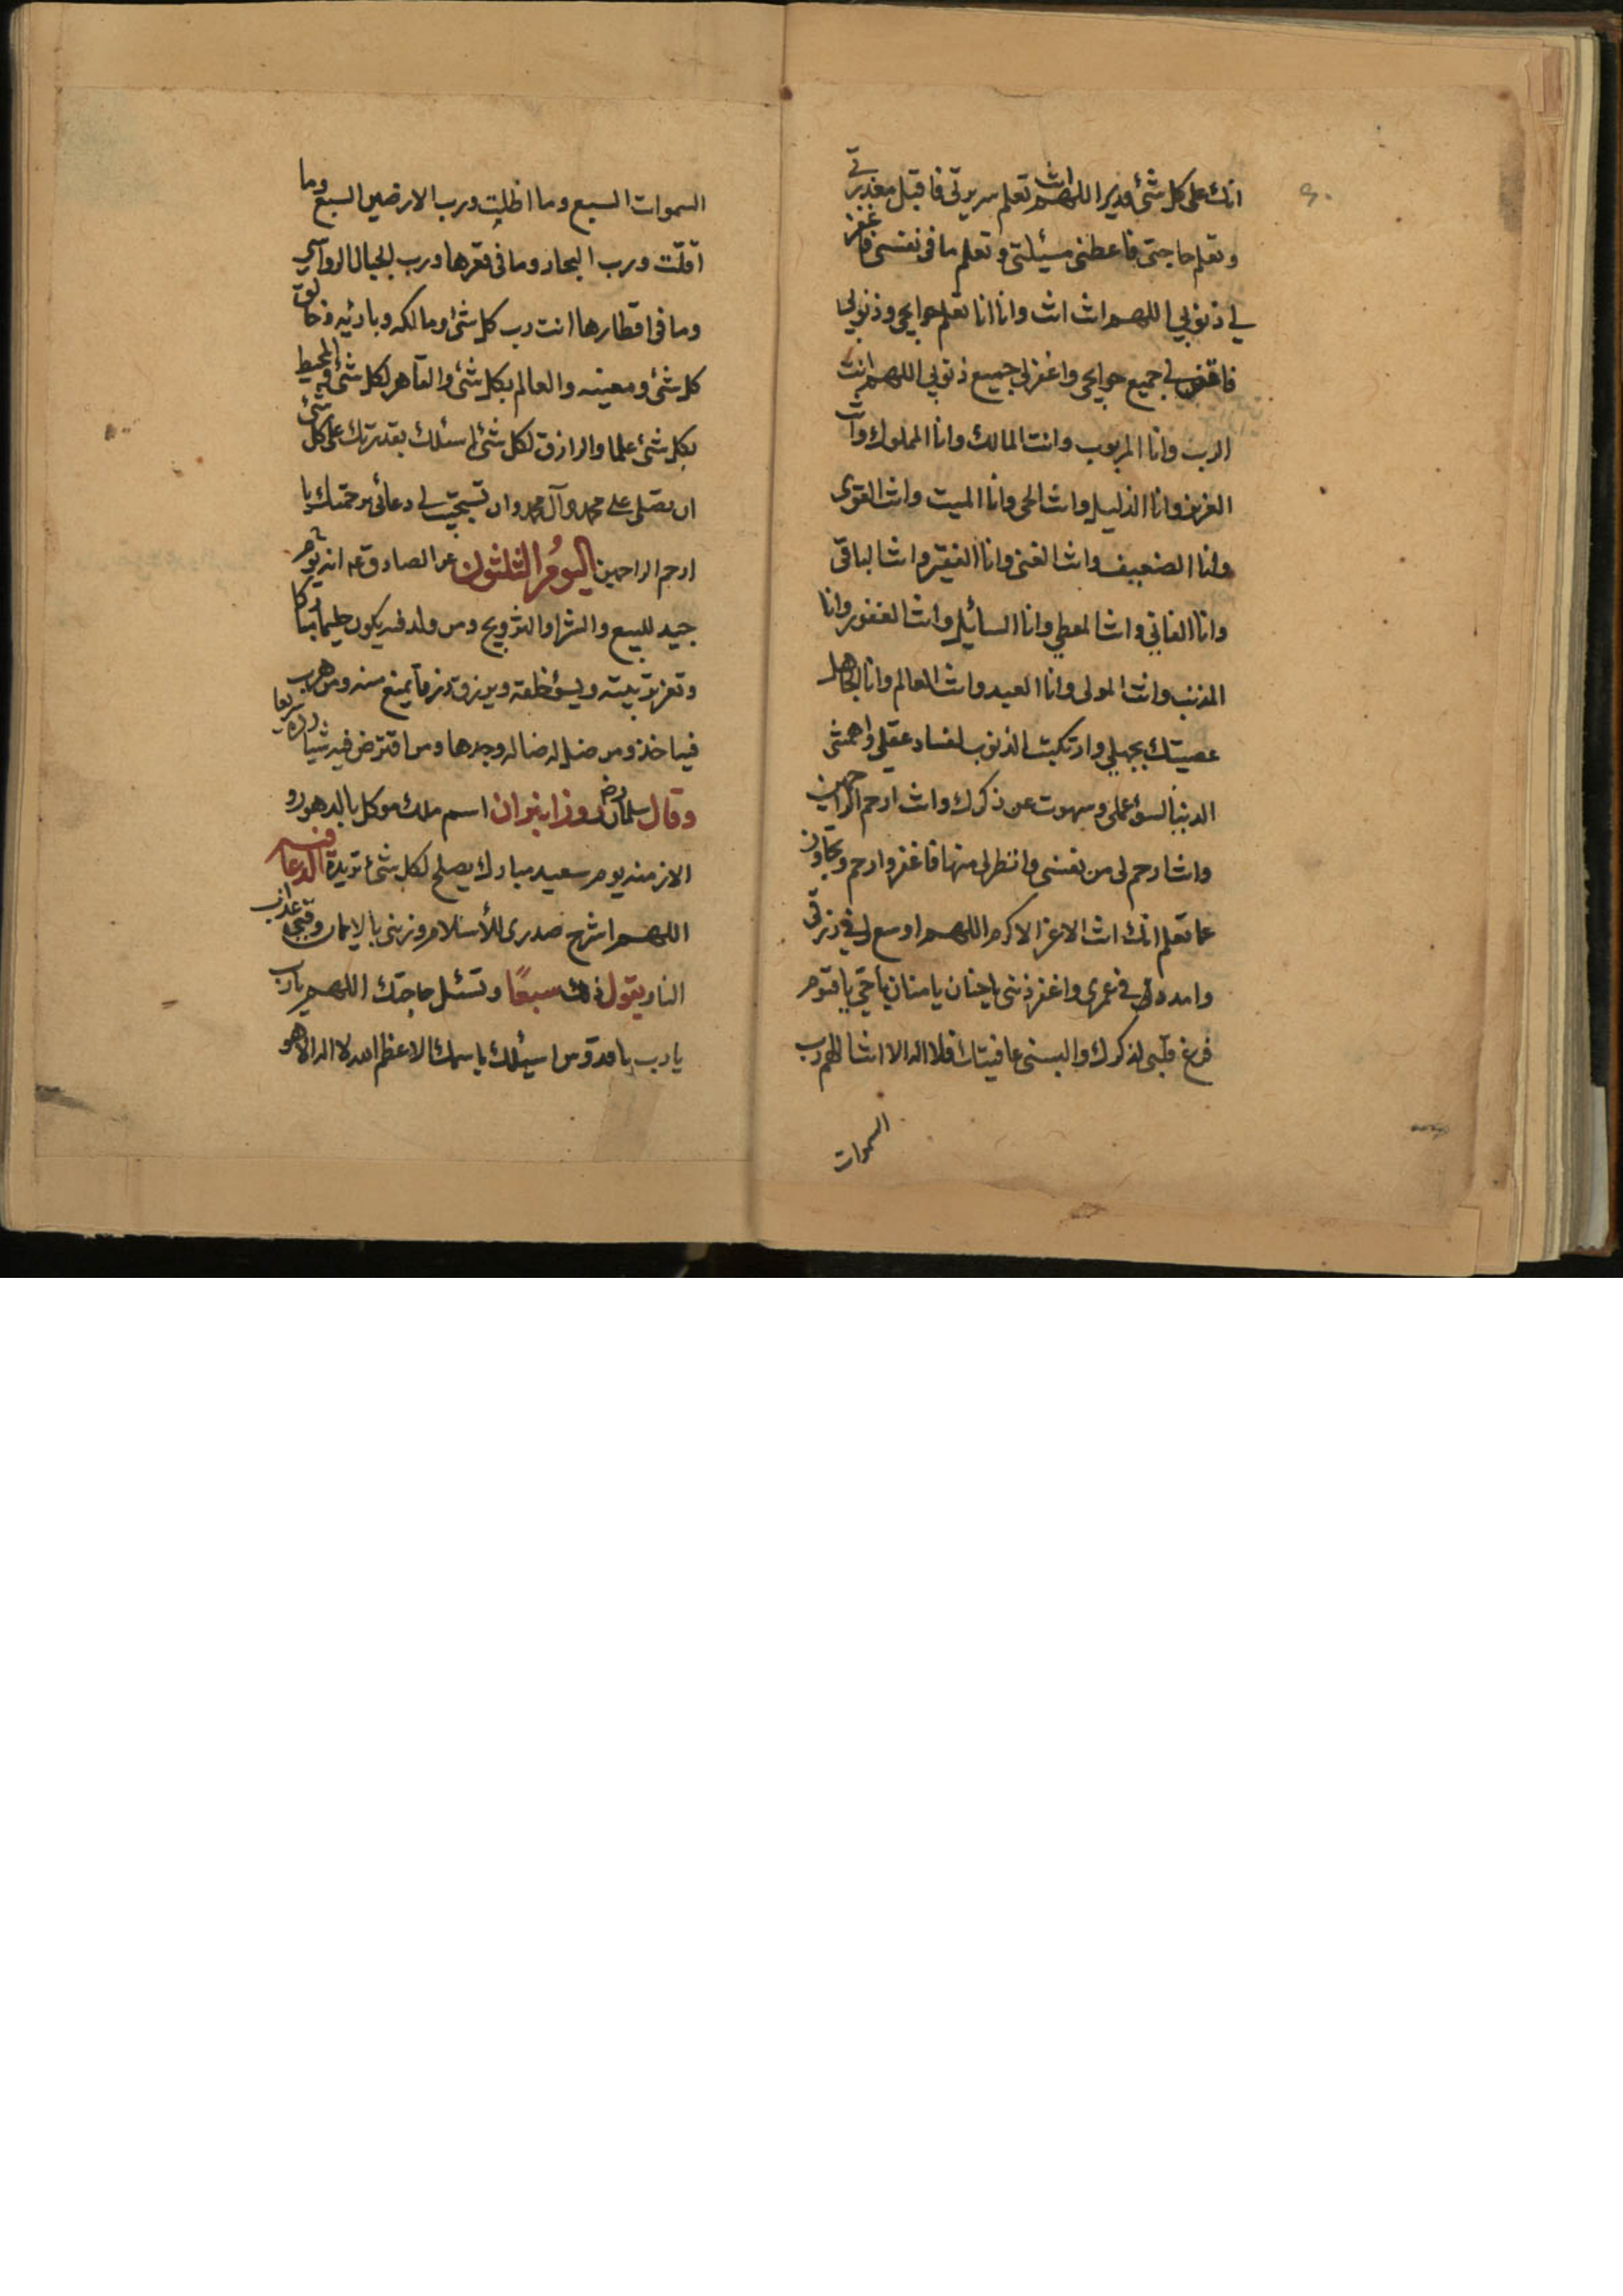 انك على كل شئ قدير اللهم انت تعلم سريرتى فاقبل معذرتى
وتعلم حاجتى فاعطنى مسئلتى وتعلم ما فى نفسى فاغفر
لى ذنوبى اللهم انت انت وانا انا تعلم حوايجى وذنوبى
فاقض لى جميع حوايجى واغفر لى جميع ذنوبى اللهم انت
الرب وانا المربوب وانت المالك وانا المملوك وانت
العزيز وانا الذليل وانت الحى وانا الميت وانت القوى
وانا الضعيف وانت الغنى وانا الفقير وانت الباقى
وانا الفانى وانت المعطى وانا السائل وانت الغفور وانا
المذنب وانت المولى وانا العبد وانت العالم وانا الجاهل
عصيتك بجهلى وارتكبت الذنوب لفساد عقلى واهمتنى
الدنيا لسؤ عملى وسهوت عن ذكرك وانت ارحم الراحمين
وانت ارحم لى من نفسى وانظر لى منها فاغفر وارحم وتجاوز
عما تعلم انك انت الاعز الاكرم اللهم اوسع لى فى رزقى
وامدد لى فى عمرى واغفر ذنبى يا حنان يا منان يا حى يا قيوم
فرغ قلبى لذكرك والبسنى عافيتك فلا اله الا انت اللهم رب
السموات
السموات السبع وما اظلت ورب الارضين السبع وما
اقلت ورب البحار وما فى قعرها ورب الجبال الرواسى
وما فى اقطارها انت رب كل شئ ومالكه وبارئه وخالق
كل شئ ومعينه والعالم بكل شئ والقاهر لكل شئ والمحيط
بكل شئ علما والرازق لكل شئ اسئلك بقدرتك على كل شئ
ان تصلى على محمد وآل محمد وان تستجيب لى دعائى برحمتك يا
ارحم الراحمين اليوم الثلثون عن الصادق ع انه يوم
جيد للبيع والشرا والتزويج ومن ولد فيه يكون حليما مباركا
وتعز تربيته ويسؤ خلقه ويرزق رزقا يمنع منه ومن هرب
فيه اخذ ومن ضل له ضاله وجدها ومن اقترض فيه شيا رده سريعا
وقال سلمان رض روز انيران اسم ملك موكل بالدهور و
الازمنه يوم سعيد مبارك يصلح لكل شئ تريده الدعا فيه
اللهم اشرح صدرى للأسلام وزينى بالايمان وقنى عذاب
النار يقول ذلك سبعًا وتسئل حاجتك اللهم يا رب
يا رب يا قدوس اسئلك باسمك الاعظم الله لا اله الا هو